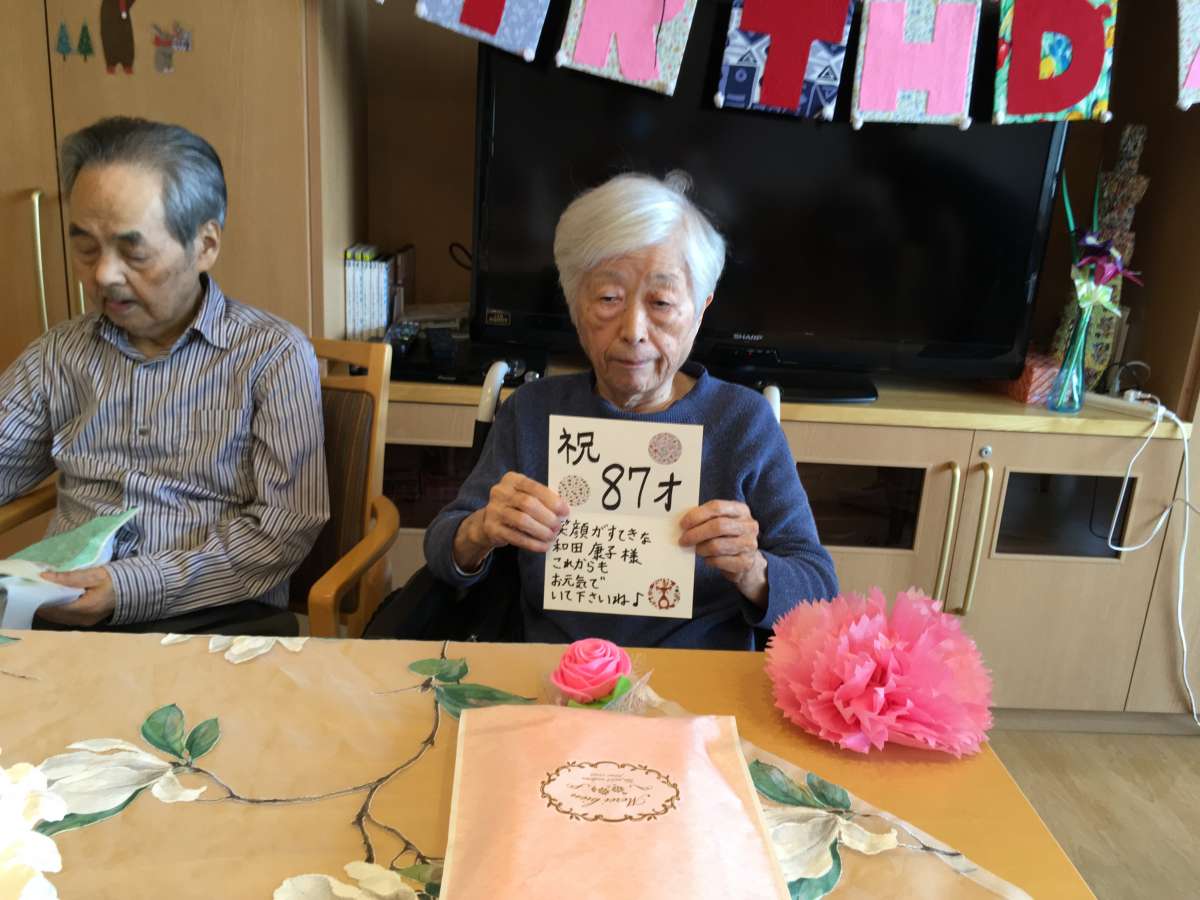 RTHD
SHARP
祝
87才
笑顔がすてきな
和田 康子様
これからも
お元気で
いて下さいね♪
Merci beaucoup